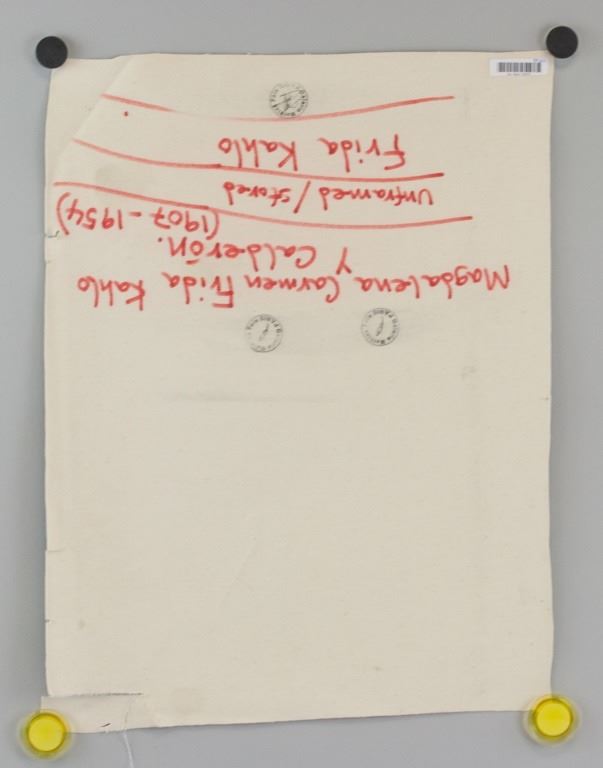 Magdalena Carmen Frida Kahlo
Y Calderón.
(1907 - 1954)
Unframed / Stored
Frida Kahlo